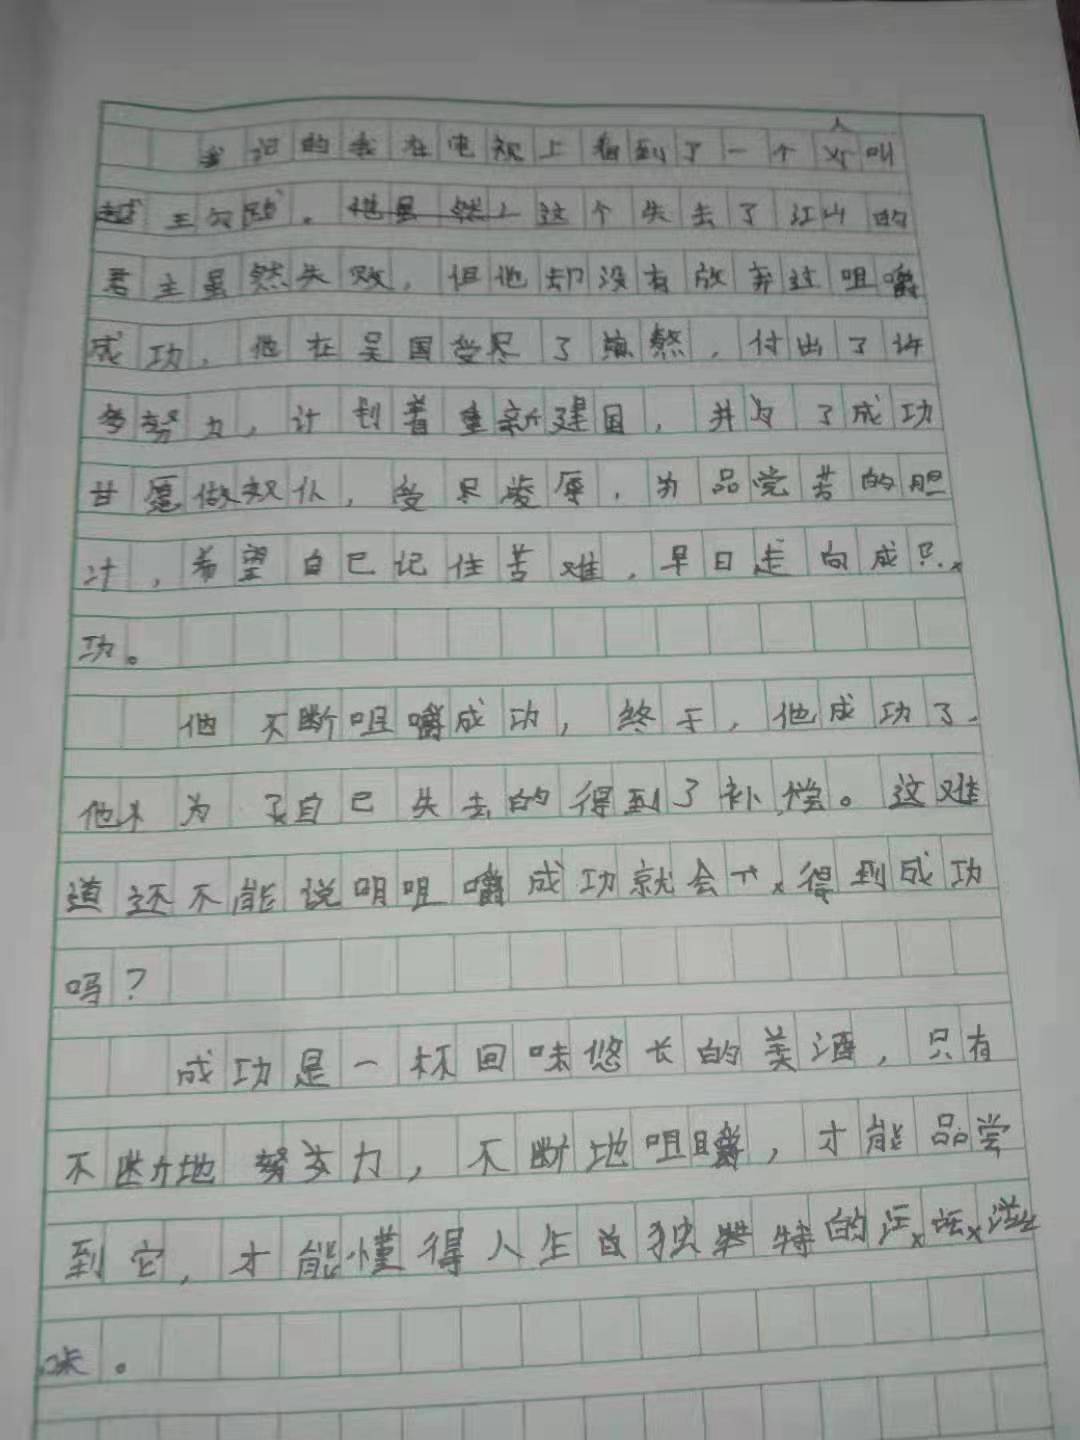 我记的我在电视上看到了一个人叫
越王勾践。这个失去了江山的
君主虽然失败，但他却没有放弃过咀嚼
成功，他在吴国受尽了煎熬，付出了许
多努力，计划着重新建国，并为了成功
甘愿做奴仆，受尽凌辱，为品尝苦的胆
汁，希望自己记住苦难，早日走向成
功。
他不断咀嚼成功，终于，他成功了，
他为了自己失去的得到了补偿。这难
道还不能说明咀嚼成功就会得到成功
吗？
成功是一杯回味悠长的美酒，只有
不断地努力，不断地咀嚼，才能品尝
到它，才能懂得人生独特的滋
味。